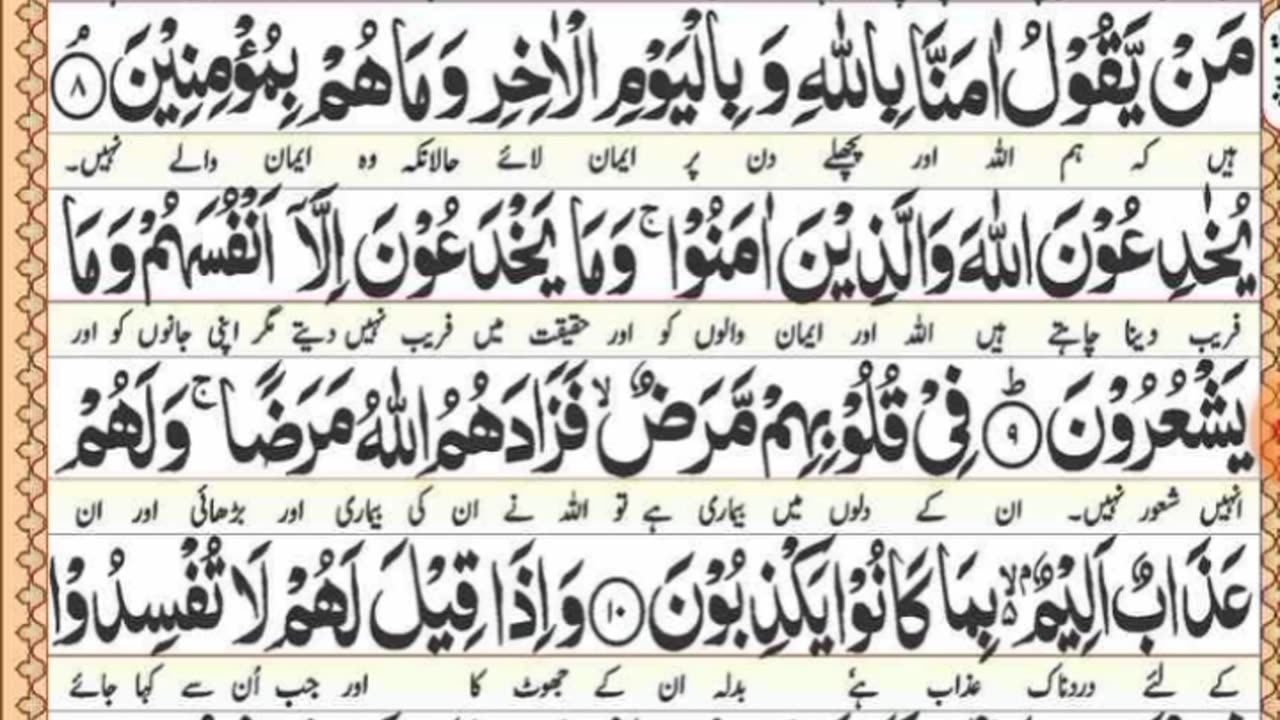 مَنْ يَّقُوْلُ اٰمَنَّا بِاللّٰهِ وَ بِالْيَوْمِ الْاٰخِرِ وَ مَا هُمْ بِمُؤْمِنِيْنَۘ ۝۸
ہیں کہ ہم اللہ اور پچھلے دن پر ایمان لائے حالانکہ وہ ایمان والے نہیں۔
يُخٰدِعُوْنَ اللّٰهَ وَالَّذِيْنَ اٰمَنُوْاۚ وَمَا يَخْدَعُوْنَ اِلَّاۤ اَنْفُسَهُمْ وَمَا
فریب دینا چاہتے ہیں اللہ اور ایمان والوں کو اور حقیقت میں فریب نہیں دیتے مگر اپنی جانوں کو اور
يَشْعُرُوْنَؕ ۝۹ فِيْ قُلُوْبِهِمْ مَّرَضٌۙ فَزَادَهُمُ اللّٰهُ مَرَضًاۚ وَلَهُمْ
انہیں شعور نہیں۔ ان کے دلوں میں بیماری ہے تو اللہ نے ان کی بیماری اور بڑھائی اور ان
عَذَابٌ اَلِيْمٌۢ ۙ۬ بِمَا كَانُوْا يَكْذِبُوْنَ ۝۱۰ وَاِذَا قِيْلَ لَهُمْ لَا تُفْسِدُوْا
کے لئے دردناک عذاب ہے بدلہ ان کے جھوٹ کا اور جب اُن سے کہا جائے